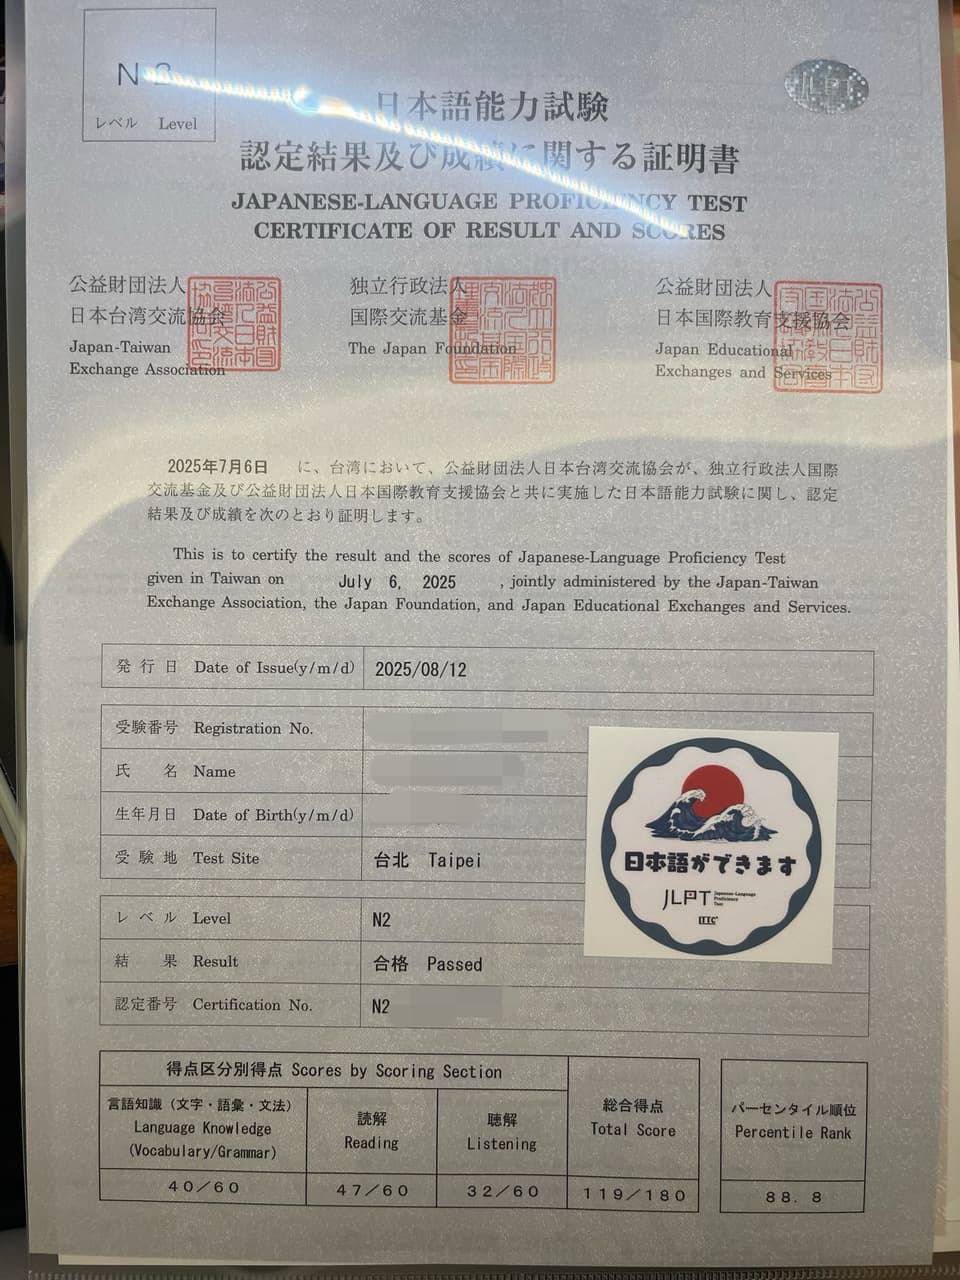 N2
レベル Level
JLPT
日本語能力試験
認定結果及び成績に関する証明書
JAPANESE-LANGUAGE PROFICIENCY TEST
CERTIFICATE OF RESULT AND SCORES
公益財団法人
日本台湾交流協会
Japan-Taiwan
Exchange Association
独立行政法人
国際交流基金
The Japan Foundation
公益財団法人
日本国際教育支援協会
Japan Educational
Exchanges and Services
2025年7月6日 に、台湾において、公益財団法人日本台湾交流協会が、独立行政法人国際
交流基金及び公益財団法人日本国際教育支援協会と共に実施した日本語能力試験に関し、認定
結果及び成績を次のとおり証明します。
This is to certify the result and the scores of Japanese-Language Proficiency Test
given in Taiwan on July 6, 2025 , jointly administered by the Japan-Taiwan
Exchange Association, the Japan Foundation, and Japan Educational Exchanges and Services.
発行日 Date of Issue(y/m/d) 2025/08/12
受験番号 Registration No.
氏名 Name
生年月日 Date of Birth(y/m/d)
受験地 Test Site 台北 Taipei
レベル Level N2
結果 Result 合格 Passed
認定番号 Certification No. N2
日本語ができます
JLPT Japanese-Language
Proficiency
Test
LTTC
得点区分別得点 Scores by Scoring Section
言語知識（文字・語彙・文法）
Language Knowledge
(Vocabulary/Grammar)
読解
Reading
聴解
Listening
総合得点
Total Score
パーセンタイル順位
Percentile Rank
40/60 47/60 32/60 119/180 88.8